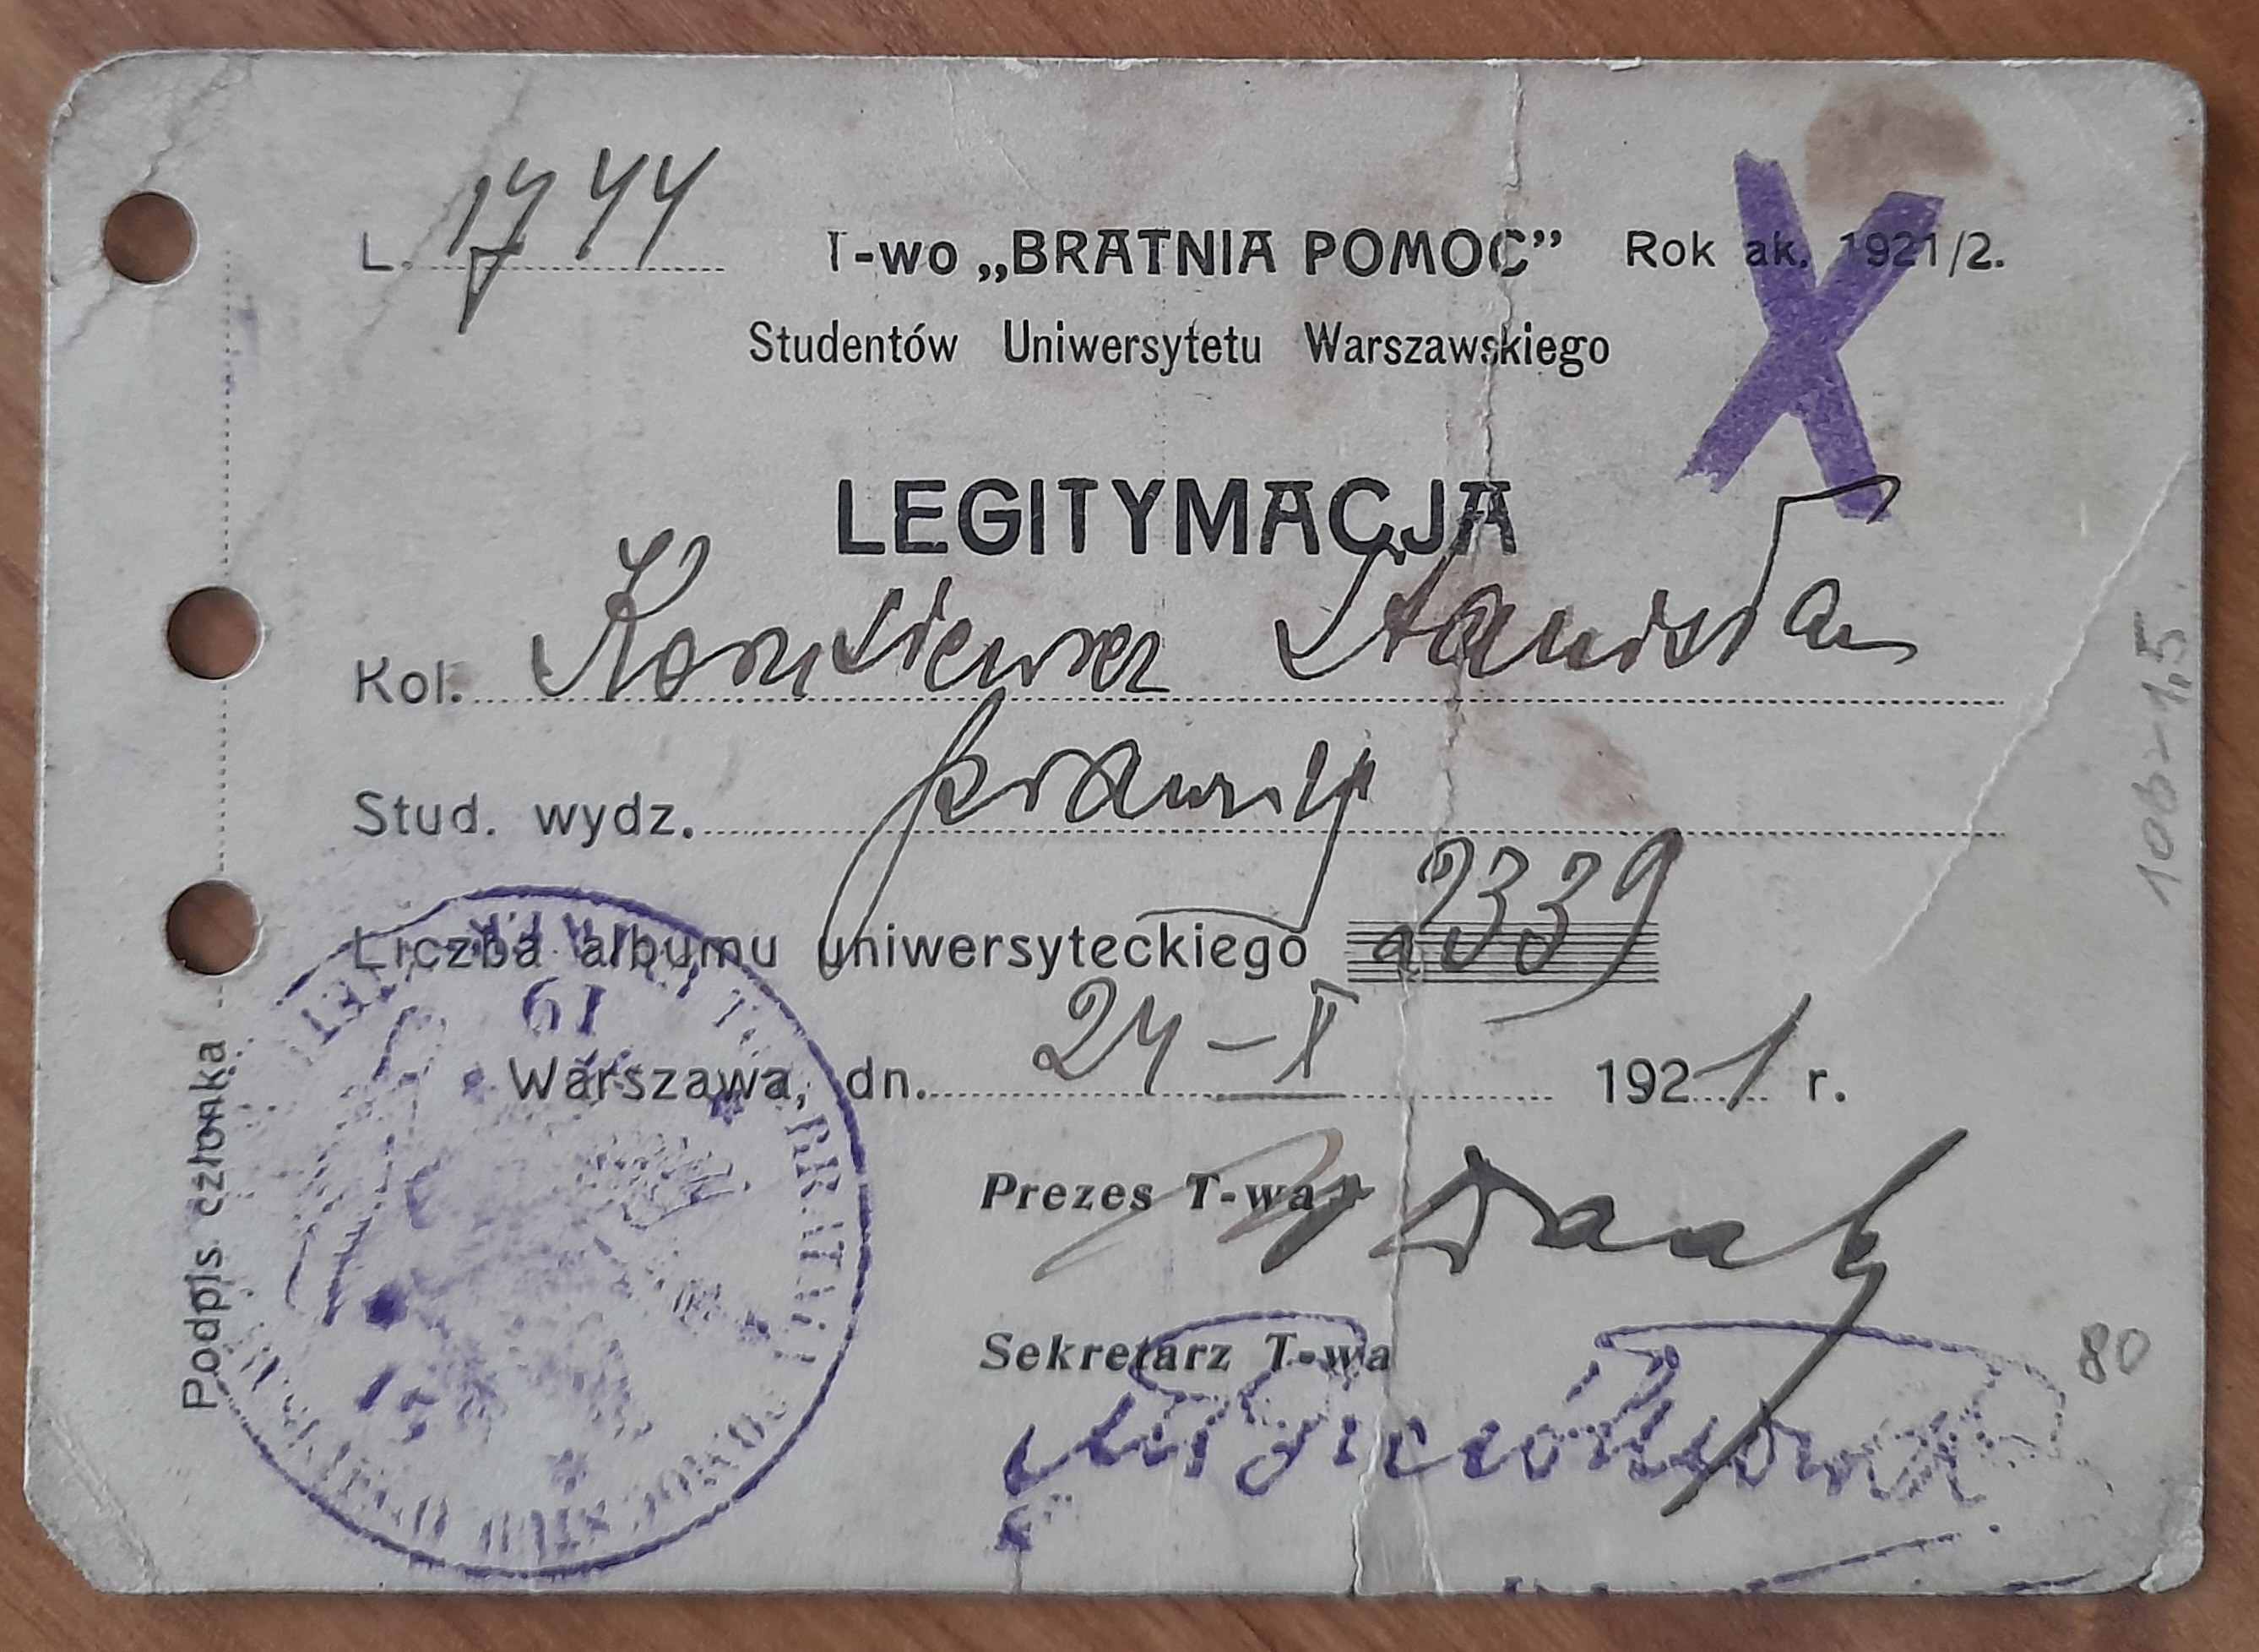 L. 1744 T-wo „BRATNIA POMOC” Rok ak. 1921/2.
Studentów Uniwersytetu Warszawskiego
LEGITYMACJA
Kol. Stanisław
Stud. wydz. prawny
Liczba albumu uniwersyteckiego 2339
Warszawa, dn. 24-X 1921 r.
Prezes T-wa
Sekretarz T-wa
Podpis członka
80